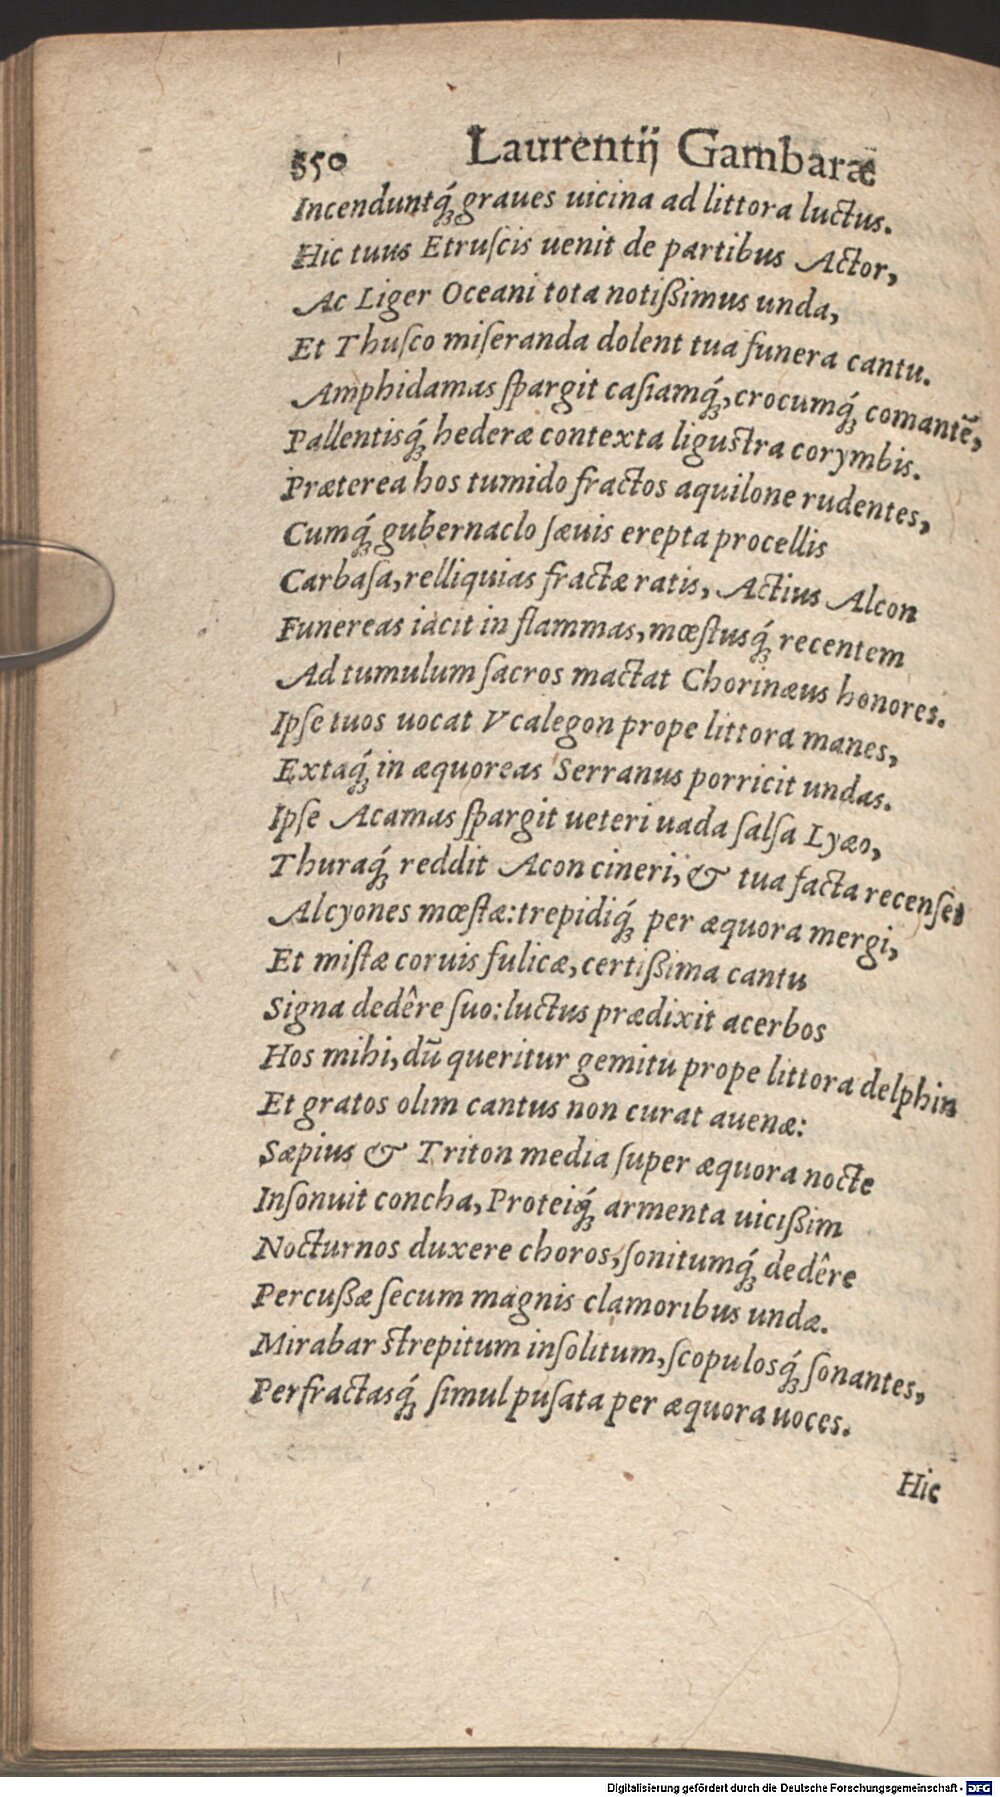 350 Laurentij Gambaræ
Incenduntq́ꝫ graues uicina ad littora luctus.
Hic tuus Etruſcis uenit de partibus Actor,
Ac Liger Oceani tota notißimus unda,
Et Thuſco miſeranda dolent tua funera cantu.
Amphidamas ſpargit caſiamq́ꝫ, crocumq́ꝫ comantē,
Pallentisq́ꝫ hederæ contexta ligustra corymbis.
Præterea hos tumido fractos aquilone rudentes,
Cumq́ꝫ gubernaclo ſæuis erepta procellis
Carbaſa, relliquias fractæ ratis, Actius Alcon
Funereas iacit in flammas, mœſtusq́ꝫ recentem
Ad tumulum ſacros mactat Chorinæus honores.
Ipſe tuos uocat Vcalegon prope littora manes,
Extaq́ꝫ in æquoreas Serranus porricit undas.
Ipſe Acamas ſpargit ueteri uada ſalſa Lyæo,
Thuraq́ꝫ reddit Acon cineri, & tua facta recenſet
Alcyones mœſtæ: trepidiq́ꝫ per æquora mergi,
Et miſtæ coruis fulicæ, certißima cantu
Signa dedêre ſuo: luctus prædixit acerbos
Hos mihi, dū queritur gemitu prope littora delphin
Et gratos olim cantus non curat auenæ:
Sæpius & Triton media ſuper æquora nocte
Inſonuit concha, Proteiq́ꝫ armenta uicißim
Nocturnos duxere choros, ſonitumq́ꝫ dedêre
Percußæ ſecum magnis clamoribus undæ.
Mirabar strepitum inſolitum, ſcopulosq́ꝫ ſonantes,
Perfractasq́ꝫ ſimul puſata per æquora uoces.
Hic
Digitalisierung gefördert durch die Deutsche Forschungsgemeinschaft - DFG